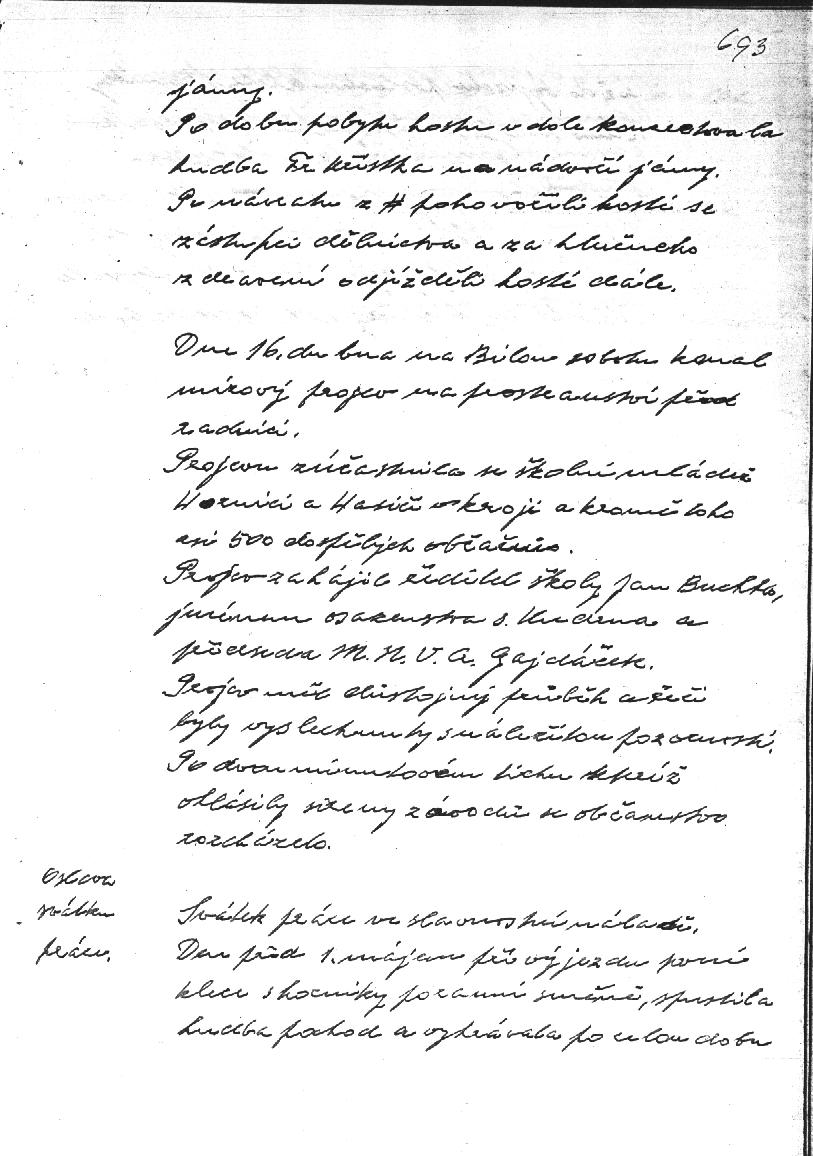 693
jámy.
Po dobu pobytu hostu v dole koncertovala
hudba Fr. Křístka na nádvoří jámy.
Po návratu z # pohovořili hosté se
zástupci dělnictva a za hlučného
zdravení odjížděli hosté dále.
Dne 16. dubna na Bílou sobotu konal
mírový projev na prostranství před
radnicí.
Projevu zúčastnila se školní mládež
Horníci a Hasiči v kroji a kromě toho
asi 500 dospělých občanů.
Projev zahájil ředitel školy Jan Buchta,
jménem osazenstva s. a
předseda M.N.V. A. Gajdáček.
Projev měl důstojný průběh a řeči
byly vyslechnuty s náležitou pozorností.
Po dvouminutovém tichu
ohlásily sireny závodů se občanstvo
rozcházelo.
Oslava
svátku
práce.
Svátek práce ve slavnostní náladě.
Den před 1. májem při výjezdu první
klece s horníky po ranní směně, spustila
hudba pochod a vyhrávala po celou dobu